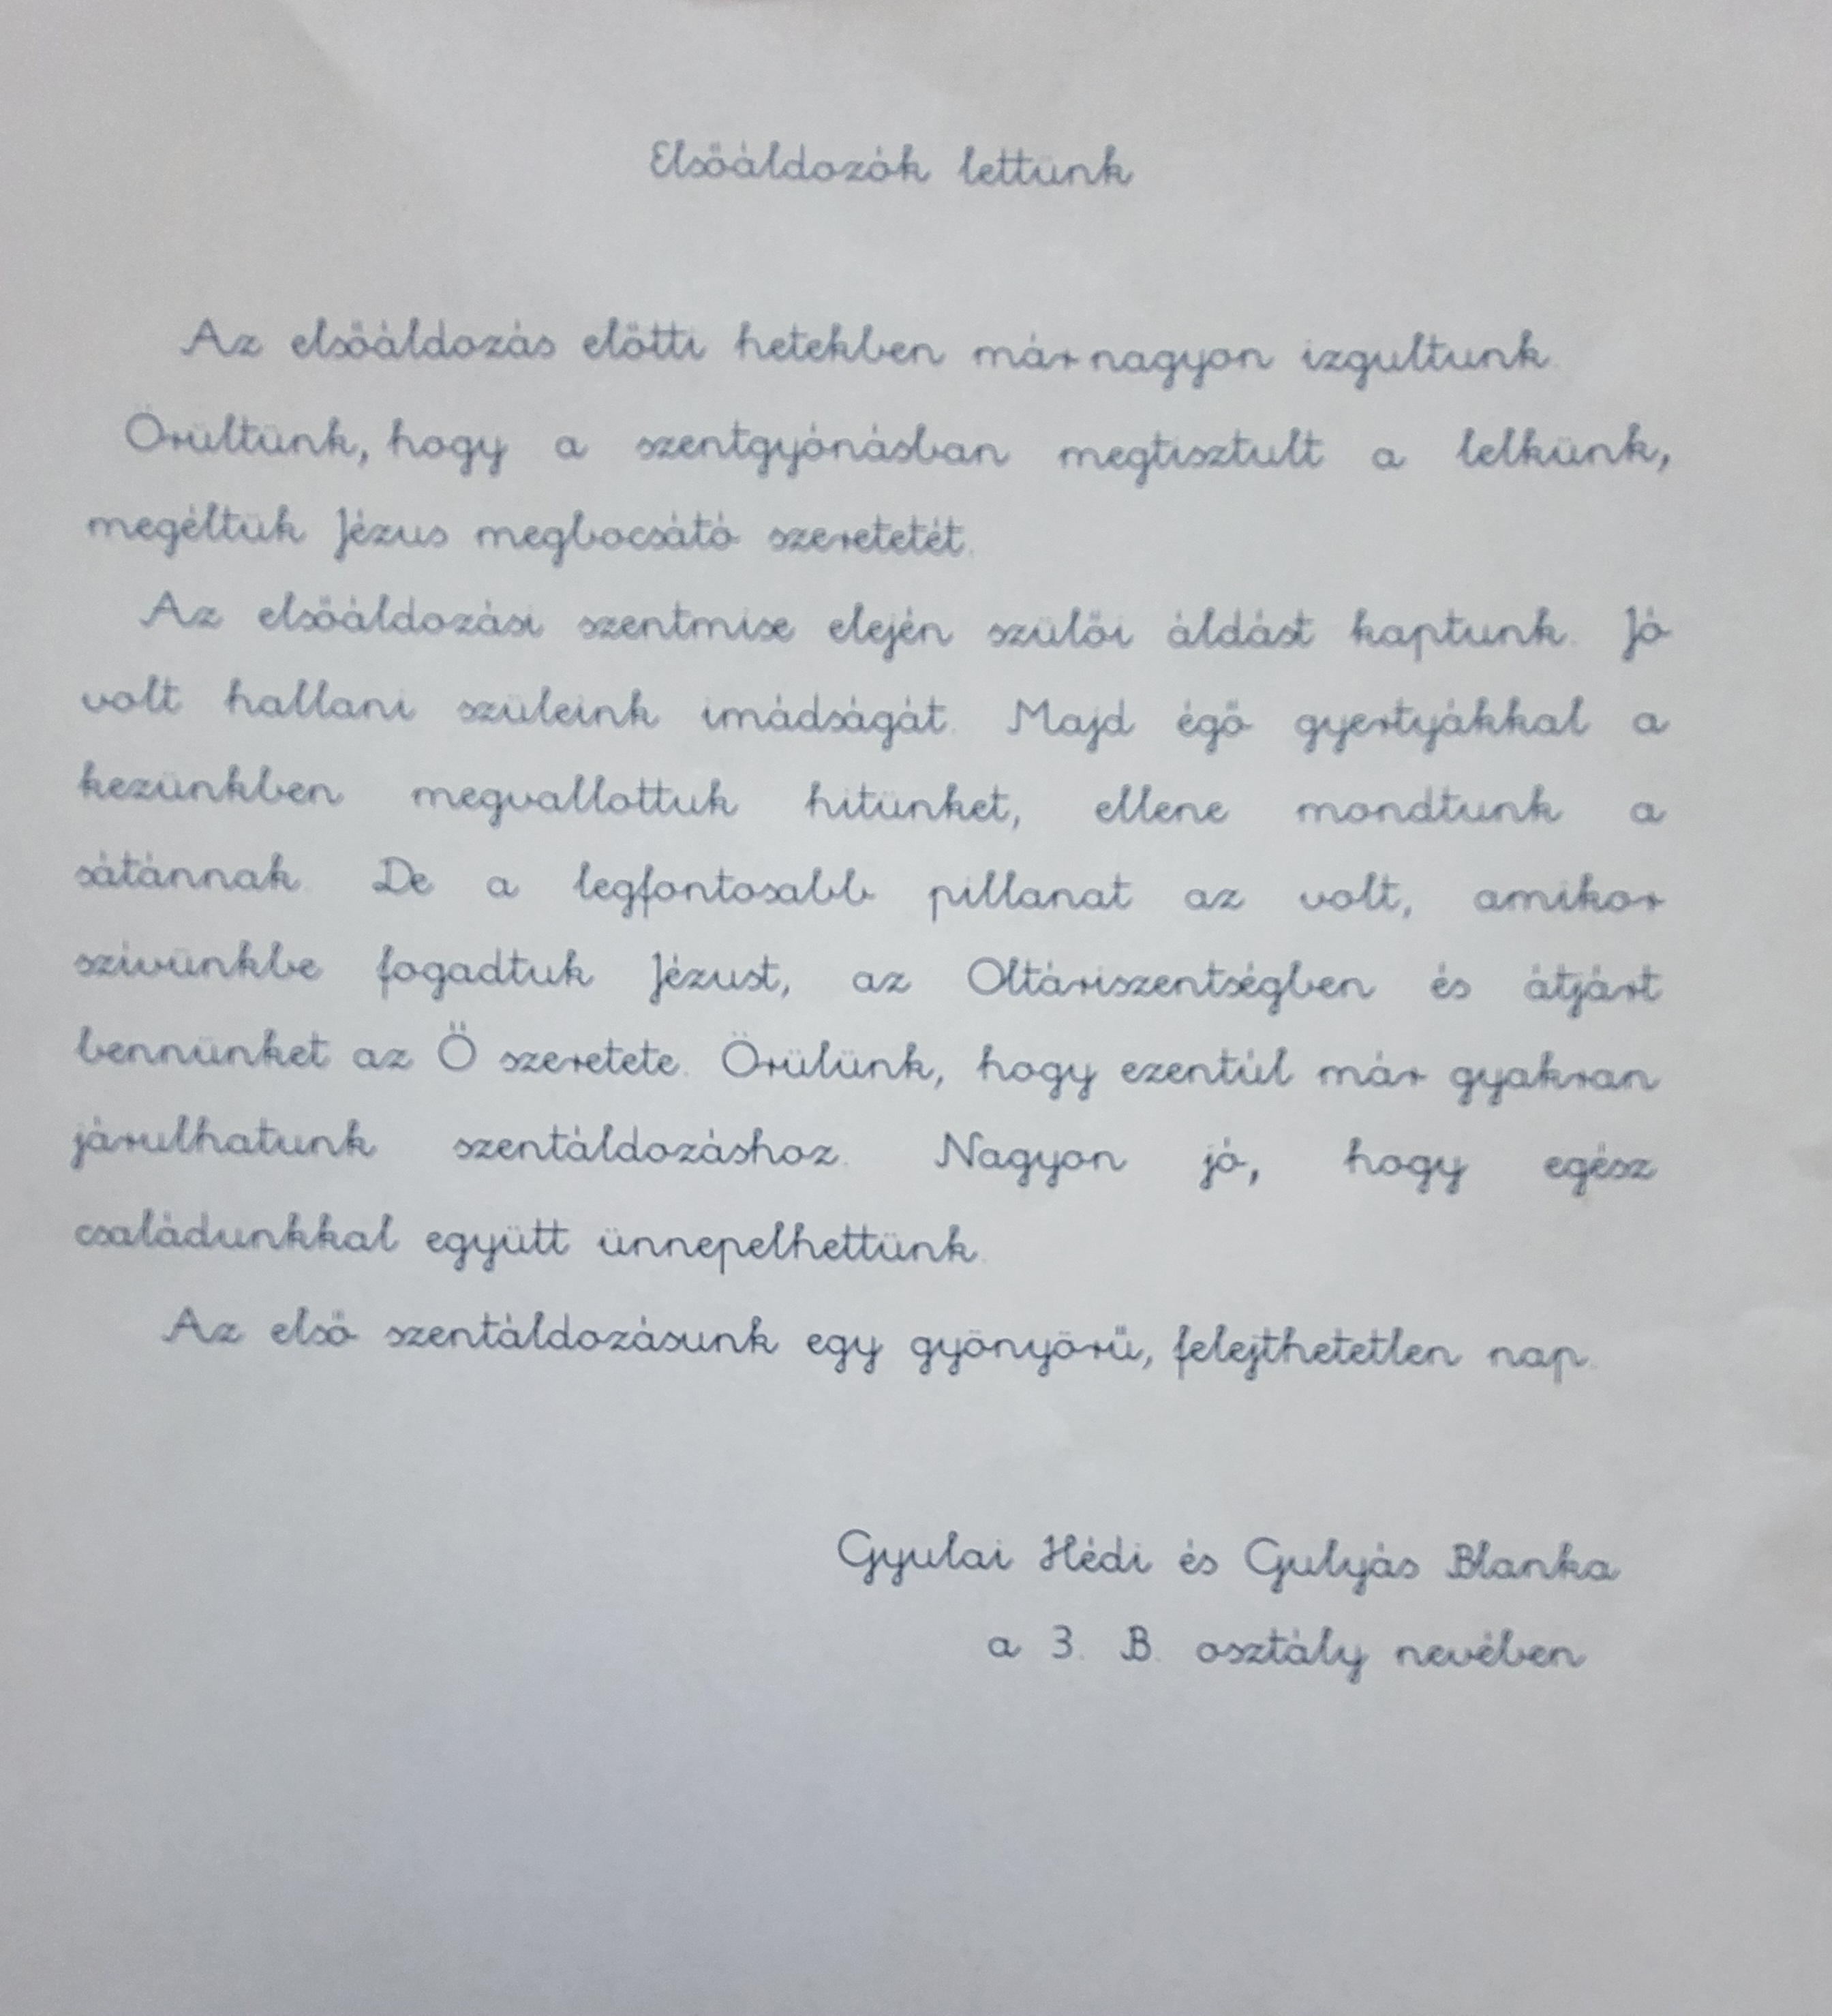 Elsőáldozók lettünk
Az elsőáldozás előtti hetekben már nagyon izgultunk.
Örültünk, hogy a szentgyónásban megtisztult a lelkünk,
megéltük Jézus megbocsátó szeretetét.
Az elsőáldozási szentmise elején szülői áldást kaptunk. Jó
volt hallani szüleink imádságát. Majd égő gyertyákkal a
kezünkben megvallottuk hitünket, ellene mondtunk a
sátánnak. De a legfontosabb pillanat az volt, amikor
szívünkbe fogadtuk Jézust, az Oltáriszentségben és átjárt
bennünket az Ő szeretete. Örülünk, hogy ezentúl már gyakran
járulhatunk szentáldozáshoz. Nagyon jó, hogy egész
családunkkal együtt ünnepelhettünk.
Az első szentáldozásunk egy gyönyörű, felejthetetlen nap.
Gyulai Hédi és Gulyás Blanka
a 3. B. osztály nevében